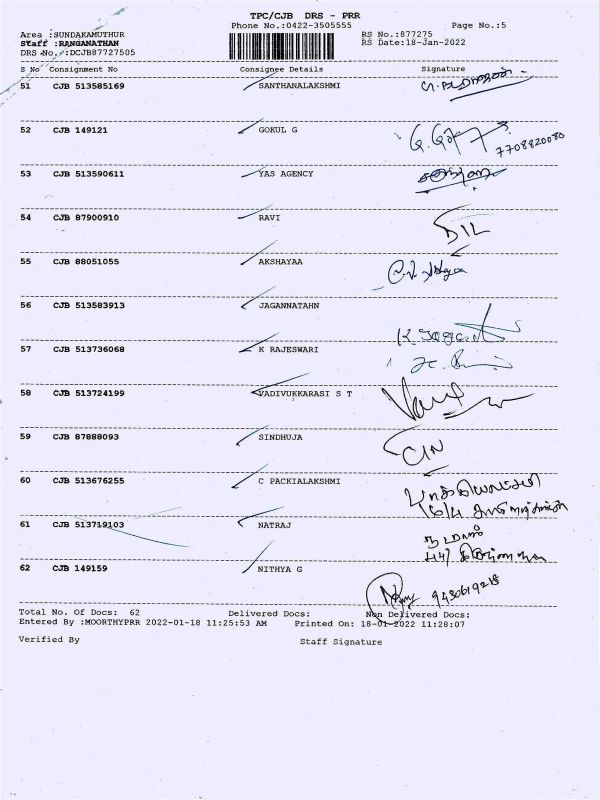 TPC/CJB DRS - PRR
Phone No.:0422-3505555
Page No.:5
Area :SUNDAKAMUTHUR
RS No.:877275
Staff :RANGANATHAN
RS Date:18-Jan-2022
DRS No.:DCJB87727505
S No Consignment No Consignee Details Signature
51 CJB 513585169 SANTHANALAKSHMI
52 CJB 149121 GOKUL G
7708820080
53 CJB 513590611 YAS AGENCY
54 CJB 87900910 RAVI
55 CJB 88051055 AKSHAYAA
56 CJB 513583913 JAGANNATAHN
57 CJB 513736068 K RAJESWARI
58 CJB 513724199 VADIVUKKARASI S T
59 CJB 87888093 SINDHUJA
60 CJB 513676255 C PACKIALAKSHMI
61 CJB 513719103 NATRAJ
62 CJB 149159 NITHYA G
Total No. Of Docs: 62 Delivered Docs: Non Delivered Docs:
Entered By :MOORTHYPRR 2022-01-18 11:25:53 AM Printed On: 18-01-2022 11:28:07
Verified By Staff Signature